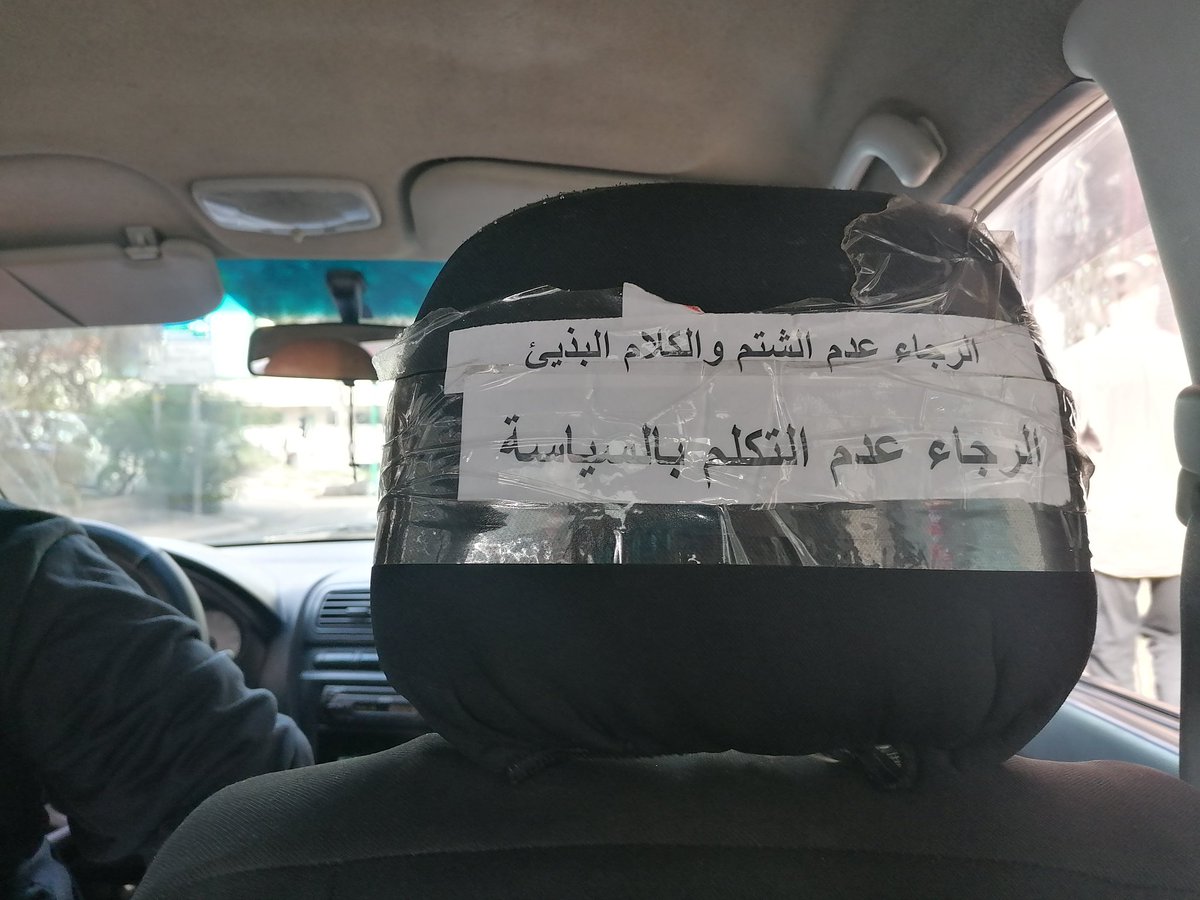 الرجاء عدم الشتم والكلام البذيئ
الرجاء عدم التكلم بالسياسة